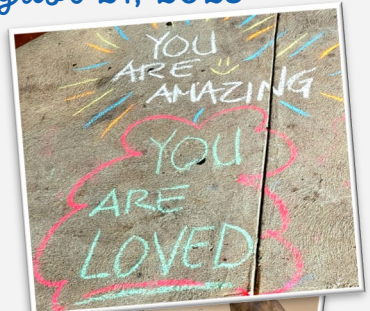 YOU
ARE
AMAZING
YOU
ARE
LOVED